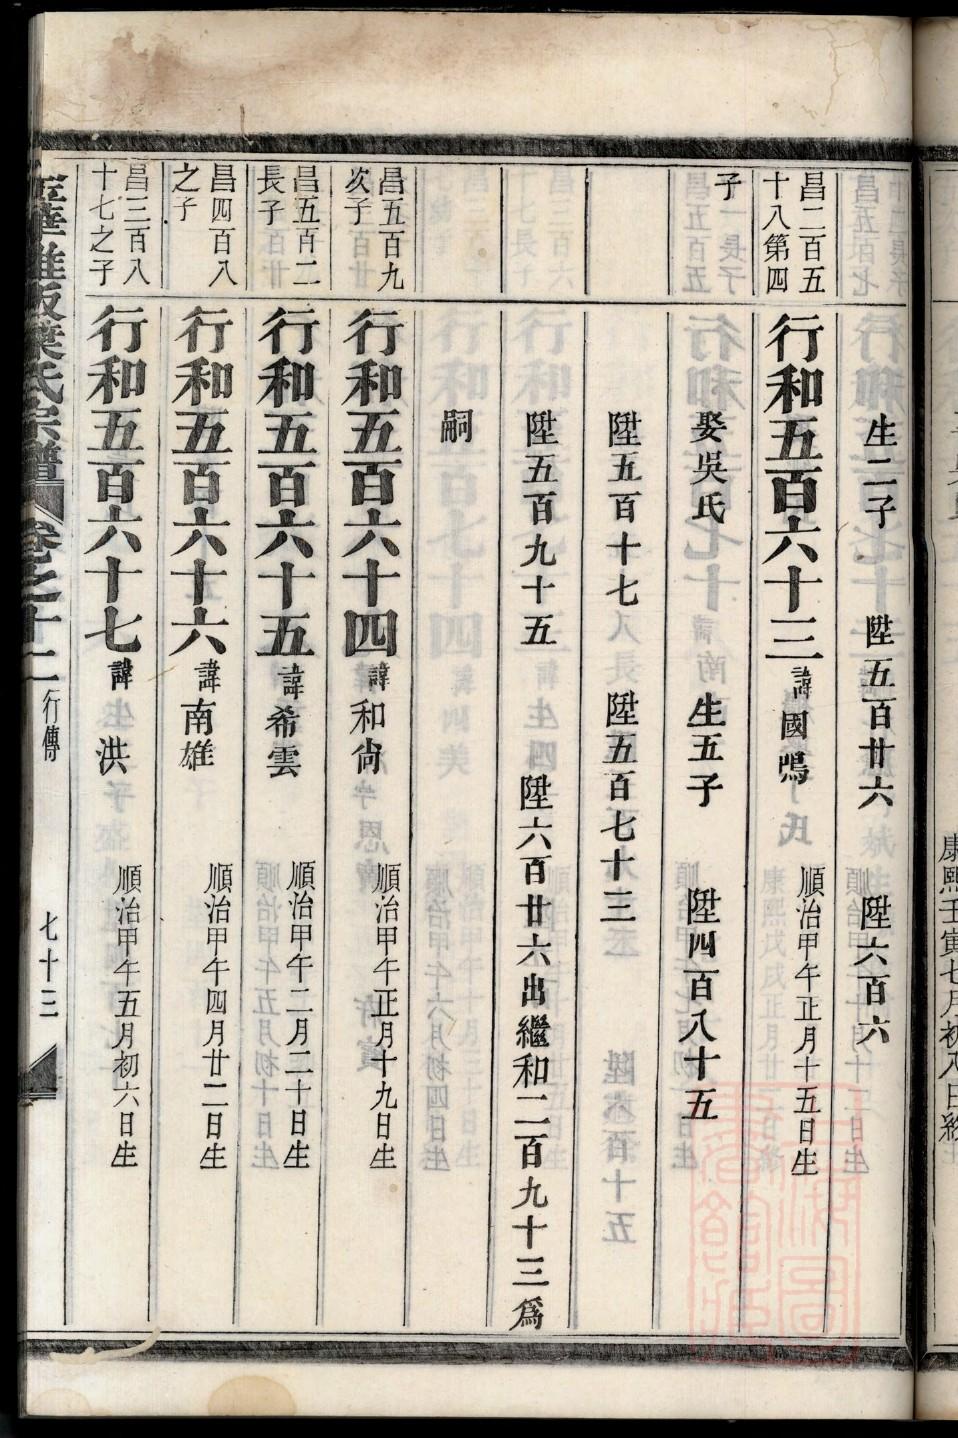 生二子　陞五百廿六　陞六百六
昌二百五
十八第四
子
行和五百六十三　諱國鳴　順治甲午正月十五日生
娶吳氏　生五子　陞四百八十五
陞五百十七　陞五百七十三
陞五百九十五　陞六百廿六出繼和二百九十三爲
嗣
昌五百九
次子
行和五百六十四　諱和尙　順治甲午正月十九日生
昌五百二
長子
行和五百六十五　諱希雲　順治甲午二月二十日生
昌四百八
之子
行和五百六十六　諱南雄　順治甲午四月廿二日生
昌三百八
十七之子
行和五百六十七　諱洪　順治甲午五月初六日生
葉氏宗譜　卷之十二　行傳　七十三